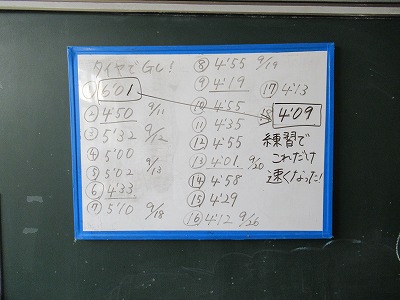 タイヤでGo!
① 6'01
② 4'50 9/11
③ 5'32 9/12
④ 5'00
⑤ 5'02 9/13
⑥ 4'33
⑦ 5'10 9/18
⑧ 4'55 9/19
⑨ 4'19
⑩ 4'55
⑪ 4'35
⑫ 4'55
⑬ 4'01 9/20
⑭ 4'58
⑮ 4'29
⑯ 4'12 9/26
⑰ 4'13
⑱ 4'09
練習で
これだけ
速くなった!